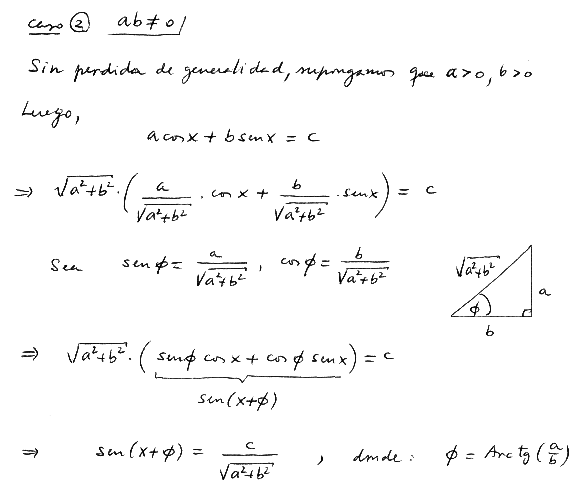 caso ② ab ≠ 0
Sin perdida de generalidad, supongamos que a > 0, b > 0
Luego,
a cos x + b sen x = c
⇒ √(a²+b²) · ( a/√(a²+b²) · cos x + b/√(a²+b²) · sen x ) = c
Sea sen φ = a/√(a²+b²) , cos φ = b/√(a²+b²)
√(a²+b²)
a
φ
b
⇒ √(a²+b²) · ( sen φ cos x + cos φ sen x ) = c
sen (x+φ)
⇒ sen (x+φ) = c/√(a²+b²) , donde : φ = Arc tg (a/b)